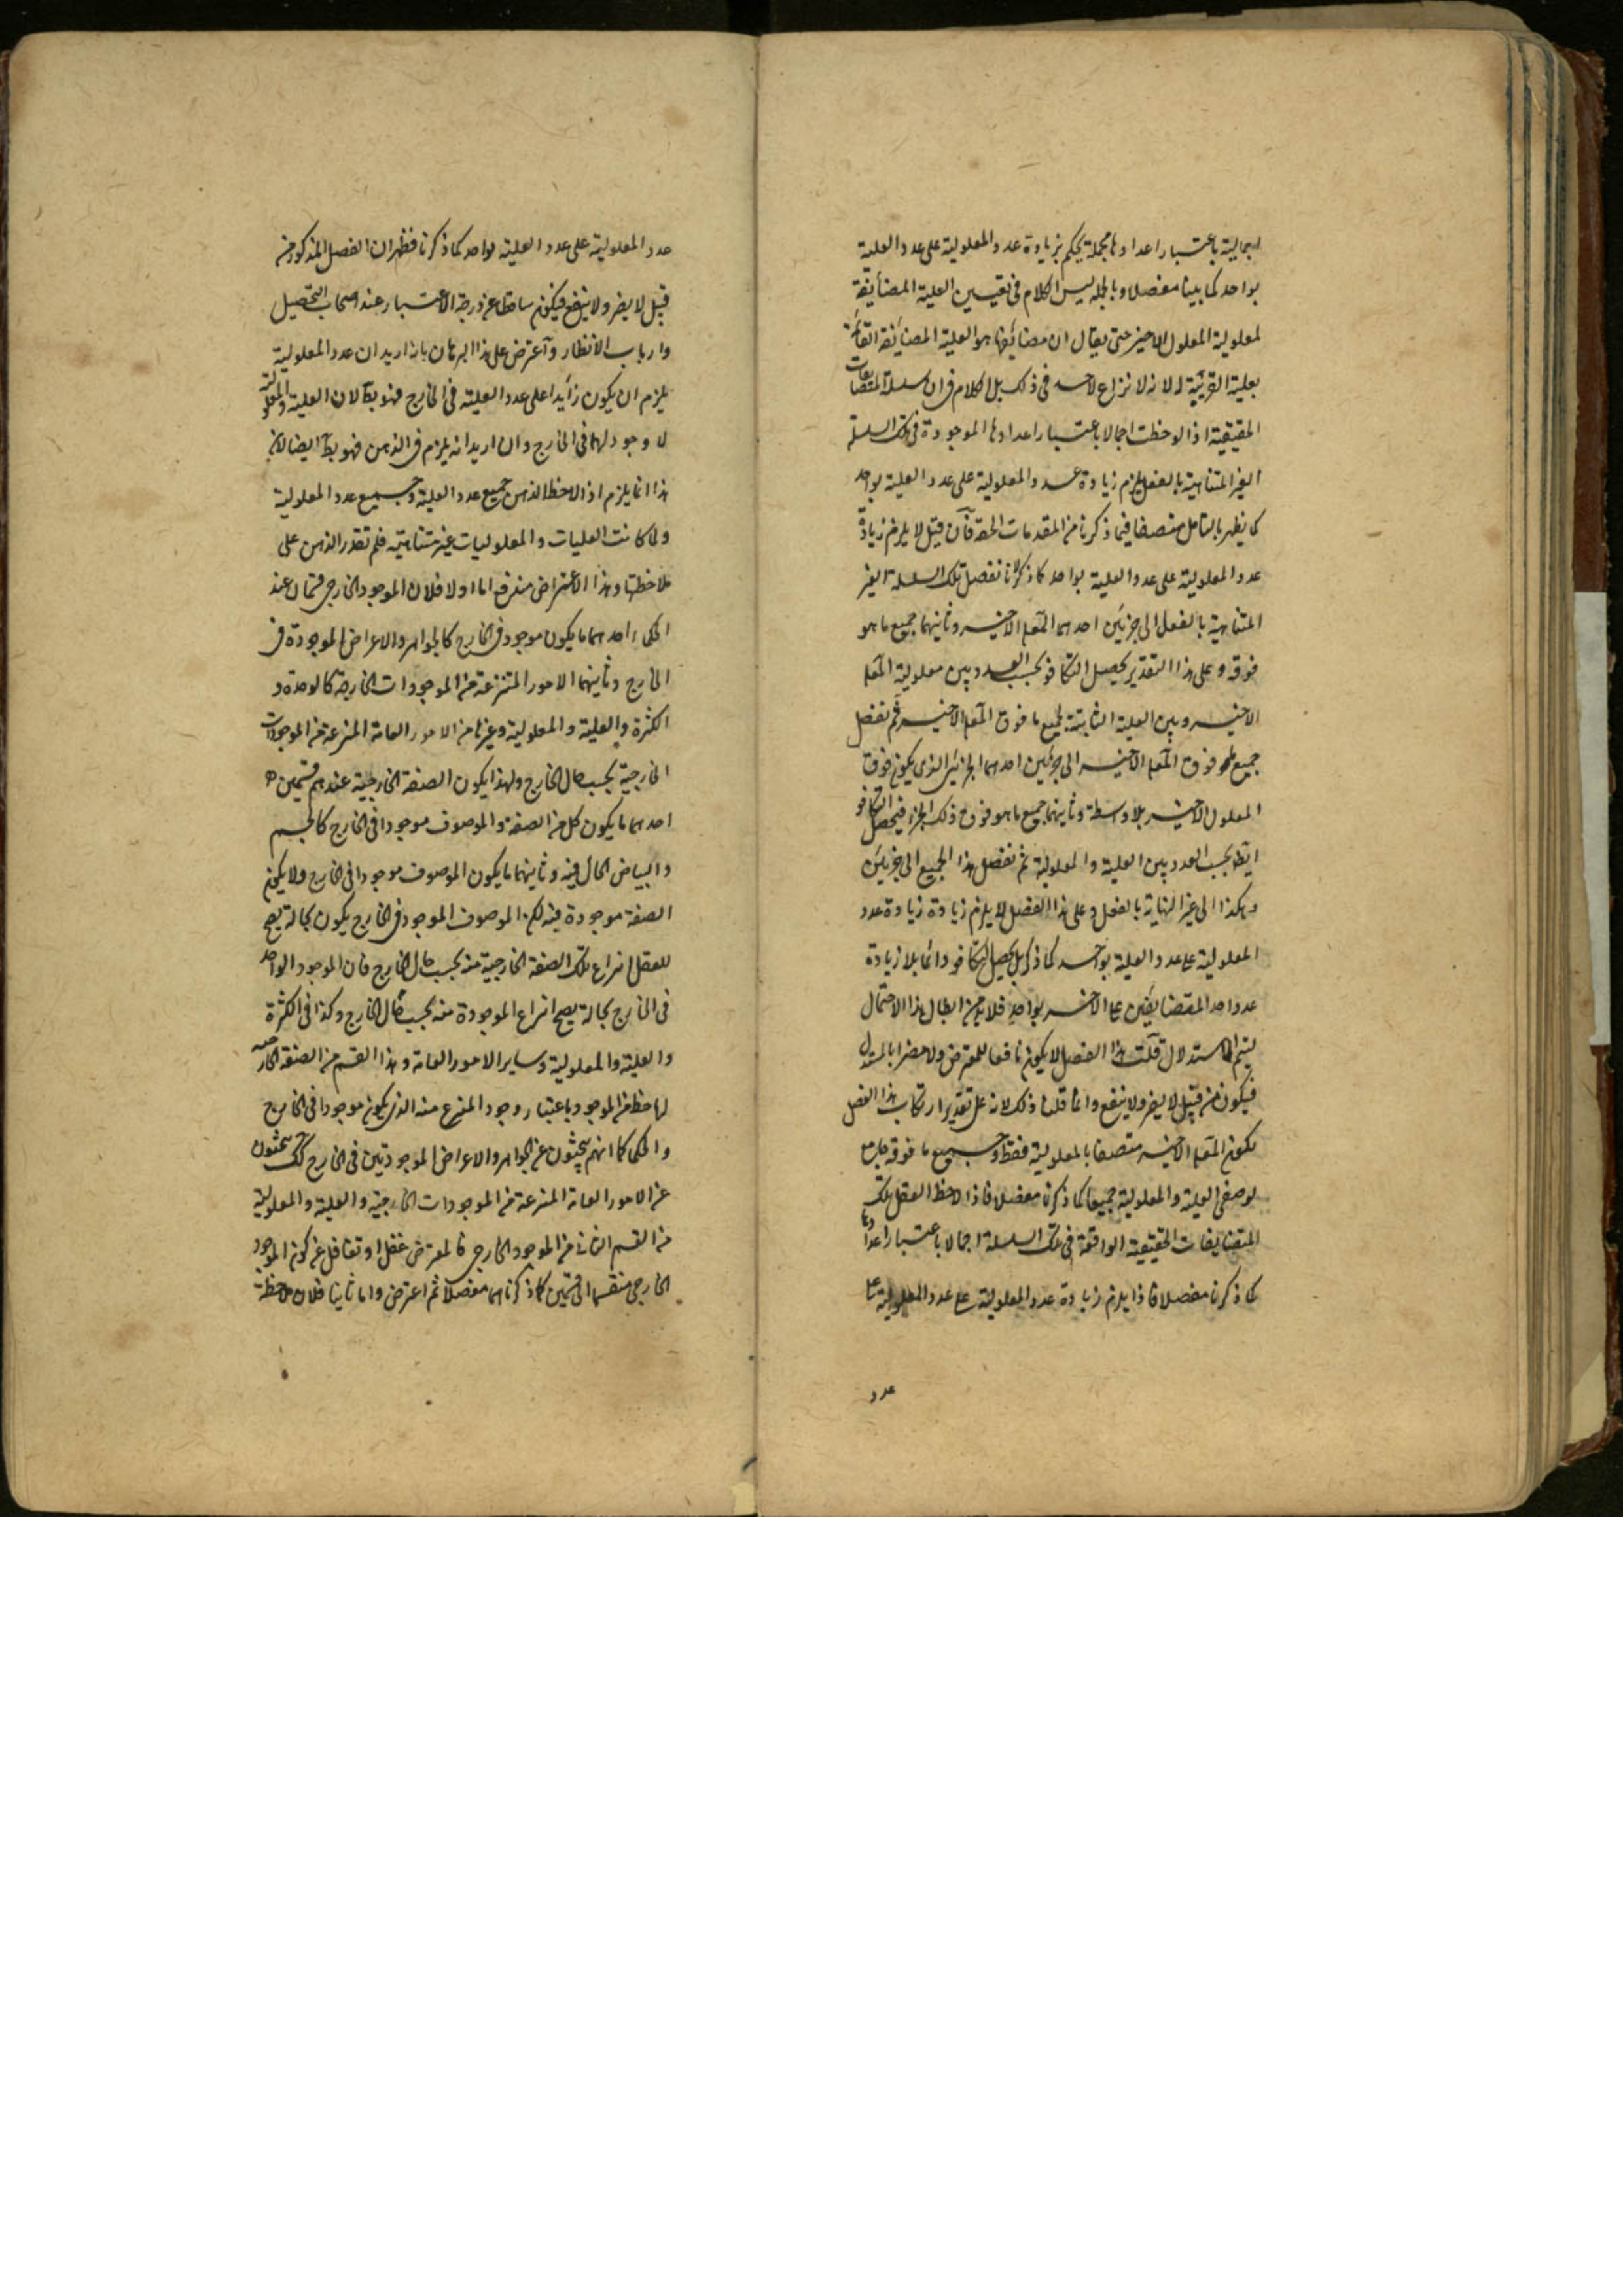 اجمالية باعتبار اعدادها مجملة يحكم بزيادة عدد المعلولية على عدد العلية
بواحد كما بينا مفصلا وبالجملة ليس الكلام فى تعيين العلية المضايفة
لمعلولية المعلول الاخير حتى يقال ان مضايفها هو العلية المضايفة القائمة
بعلية القريبة له لانه لا نزاع لاحد فى ذلك بل الكلام فى ان سلسلة المتضايفات
الحقيقية اذا لوحظت اجمالا باعتبار اعدادها الموجودة فى تلك السلسلة
الغير المتناهية بالفعل يلزم زيادة عدد المعلولية على عدد العلية بواحد
كما يظهر بالتامل منصفا فيما ذكرنا من المقدمات الحقة فان قيل لا يلزم زيادة
عدد المعلولية على عدد العلية بواحد كما ذكر لانا نفصل تلك السلسلة الغير
المتناهية بالفعل الى جزئين احدهما المعلول الاخير وثانيهما جميع ما هو
فوقه وعلى هذا التقدير يحصل التكافو بحسب العدد بين معلولية المعلول
الاخير وبين العلية الثابتة لجميع ما فوق المعلول الاخير ثم نفصل
جميع ما هو فوق المعلول الاخير الى جزئين احدهما الجزء الذى يكون فوق
المعلول الاخير بلا واسطة وثانيهما جميع ما هو فوق ذلك الجزء فيحصل التكافو
ايضا بحسب العدد بين العلية والمعلولية ثم نفصل هذا الجميع الى جزئين
وهكذا الى غير النهاية بالفعل وعلى هذا الفصل لا يلزم زيادة زيادة عدد
المعلولية على عدد العلية بواحد كما ذكر بل يحصل التكافو دائما بلا زيادة
عدد احد المتضايفين على الاخر بواحد فلا بد من ابطال هذا الاحتمال
ليتم الاستدلال قلت هذا الفصل لا يكون نافعا للمعترض ولا مضرا بالمستدل
فيكون من قبيل لا يضر ولا ينفع وانما قلنا ذلك لانه على تقدير ارتكاب هذا الفصل
يكون المعلول الاخير متصفا بالمعلولية فقط وجميع ما فوقه جامع
لوصفى العلية والمعلولية جميعا كما ذكرنا مفصلا فاذا لاحظ العقل تلك
المتضايفات الحقيقية الواقعة فى تلك السلسلة اجمالا باعتبار اعدادها
كما ذكرنا مفصلا فاذا يلزم زيادة عدد المعلولية على عدد المعلولية على
عدد
عدد المعلولية على عدد العلية بواحد كما ذكرنا فظهر ان الفصل المذكور من
قبيل لا يضر ولا ينفع فيكون ساقطا عن درجة الاعتبار عند اصحاب التحصيل
وارباب الانظار واعترض على هذا البرهان بانه اريد ان عدد المعلولية
يلزم ان يكون زايدا على عدد العلية فى الخارج فهو بط لان العلية والمعلولية
لا وجود لهما فى الخارج وان اريد انه يلزم فى الذهن فهو بط ايضا لان
هذا انما يلزم اذا لاحظ الذهن جميع عدد العلية وجميع عدد المعلولية
ولما كانت العليات والمعلوليات غير متناهية فلم تقدر الذهن على
ملاحظتها وهذا الاعتراض مندفع اما اولا فلان الموجود الخارجى قسمان عند
الحكماء احدهما ما يكون موجود فى الخارج كالجواهر والاعراض الموجودة فى
الخارج وثانيهما الامور المنتزعة من الموجودات الخارجية كالوحدة و
الكثرة والعلية والمعلولية وغيرها من الامور العامة المنتزعة من الموجودات
الخارجية بحسب حال الخارج ولهذا يكون الصفة الخارجية عندهم قسمين
احدهما ما يكون كل من الصفة والموصوف موجودا فى الخارج كالجسم
والبياض الحال فيه وثانيهما ما يكون الموصوف موجودا فى الخارج ولا يكون
الصفة موجودة فيه لكن الموصوف الموجود فى الخارج يكون بحالة يصح
للعقل انتزاع تلك الصفة الخارجية منه بحسب حال الخارج فان الموجود الواحد
فى الخارج بحالة يصح انتزاع الموجودة منه بحسب حال الخارج وكذا فى الكثرة
والعلية والمعلولية وساير الامور العامة وهذا القسم من الصفة الخارجية
لها حظ من الموجود باعتبار وجود المنتزع منه الذى يكون موجودا فى الخارج
والحكما كما انهم يبحثون عن الجواهر والاعراض الموجودتين فى الخارج كك يبحثون
عن الامور العامة المنتزعة من الموجودات الخارجية والعلية والمعلولية
من القسم الثانى من الموجود الخارجى فالمعترض غفل او تغافل عن كون الموجود
الخارجى منقسما الى قسمين كما ذكرناهما مفصلا ثم اعترض واما ثانيا فلان ملاحظة